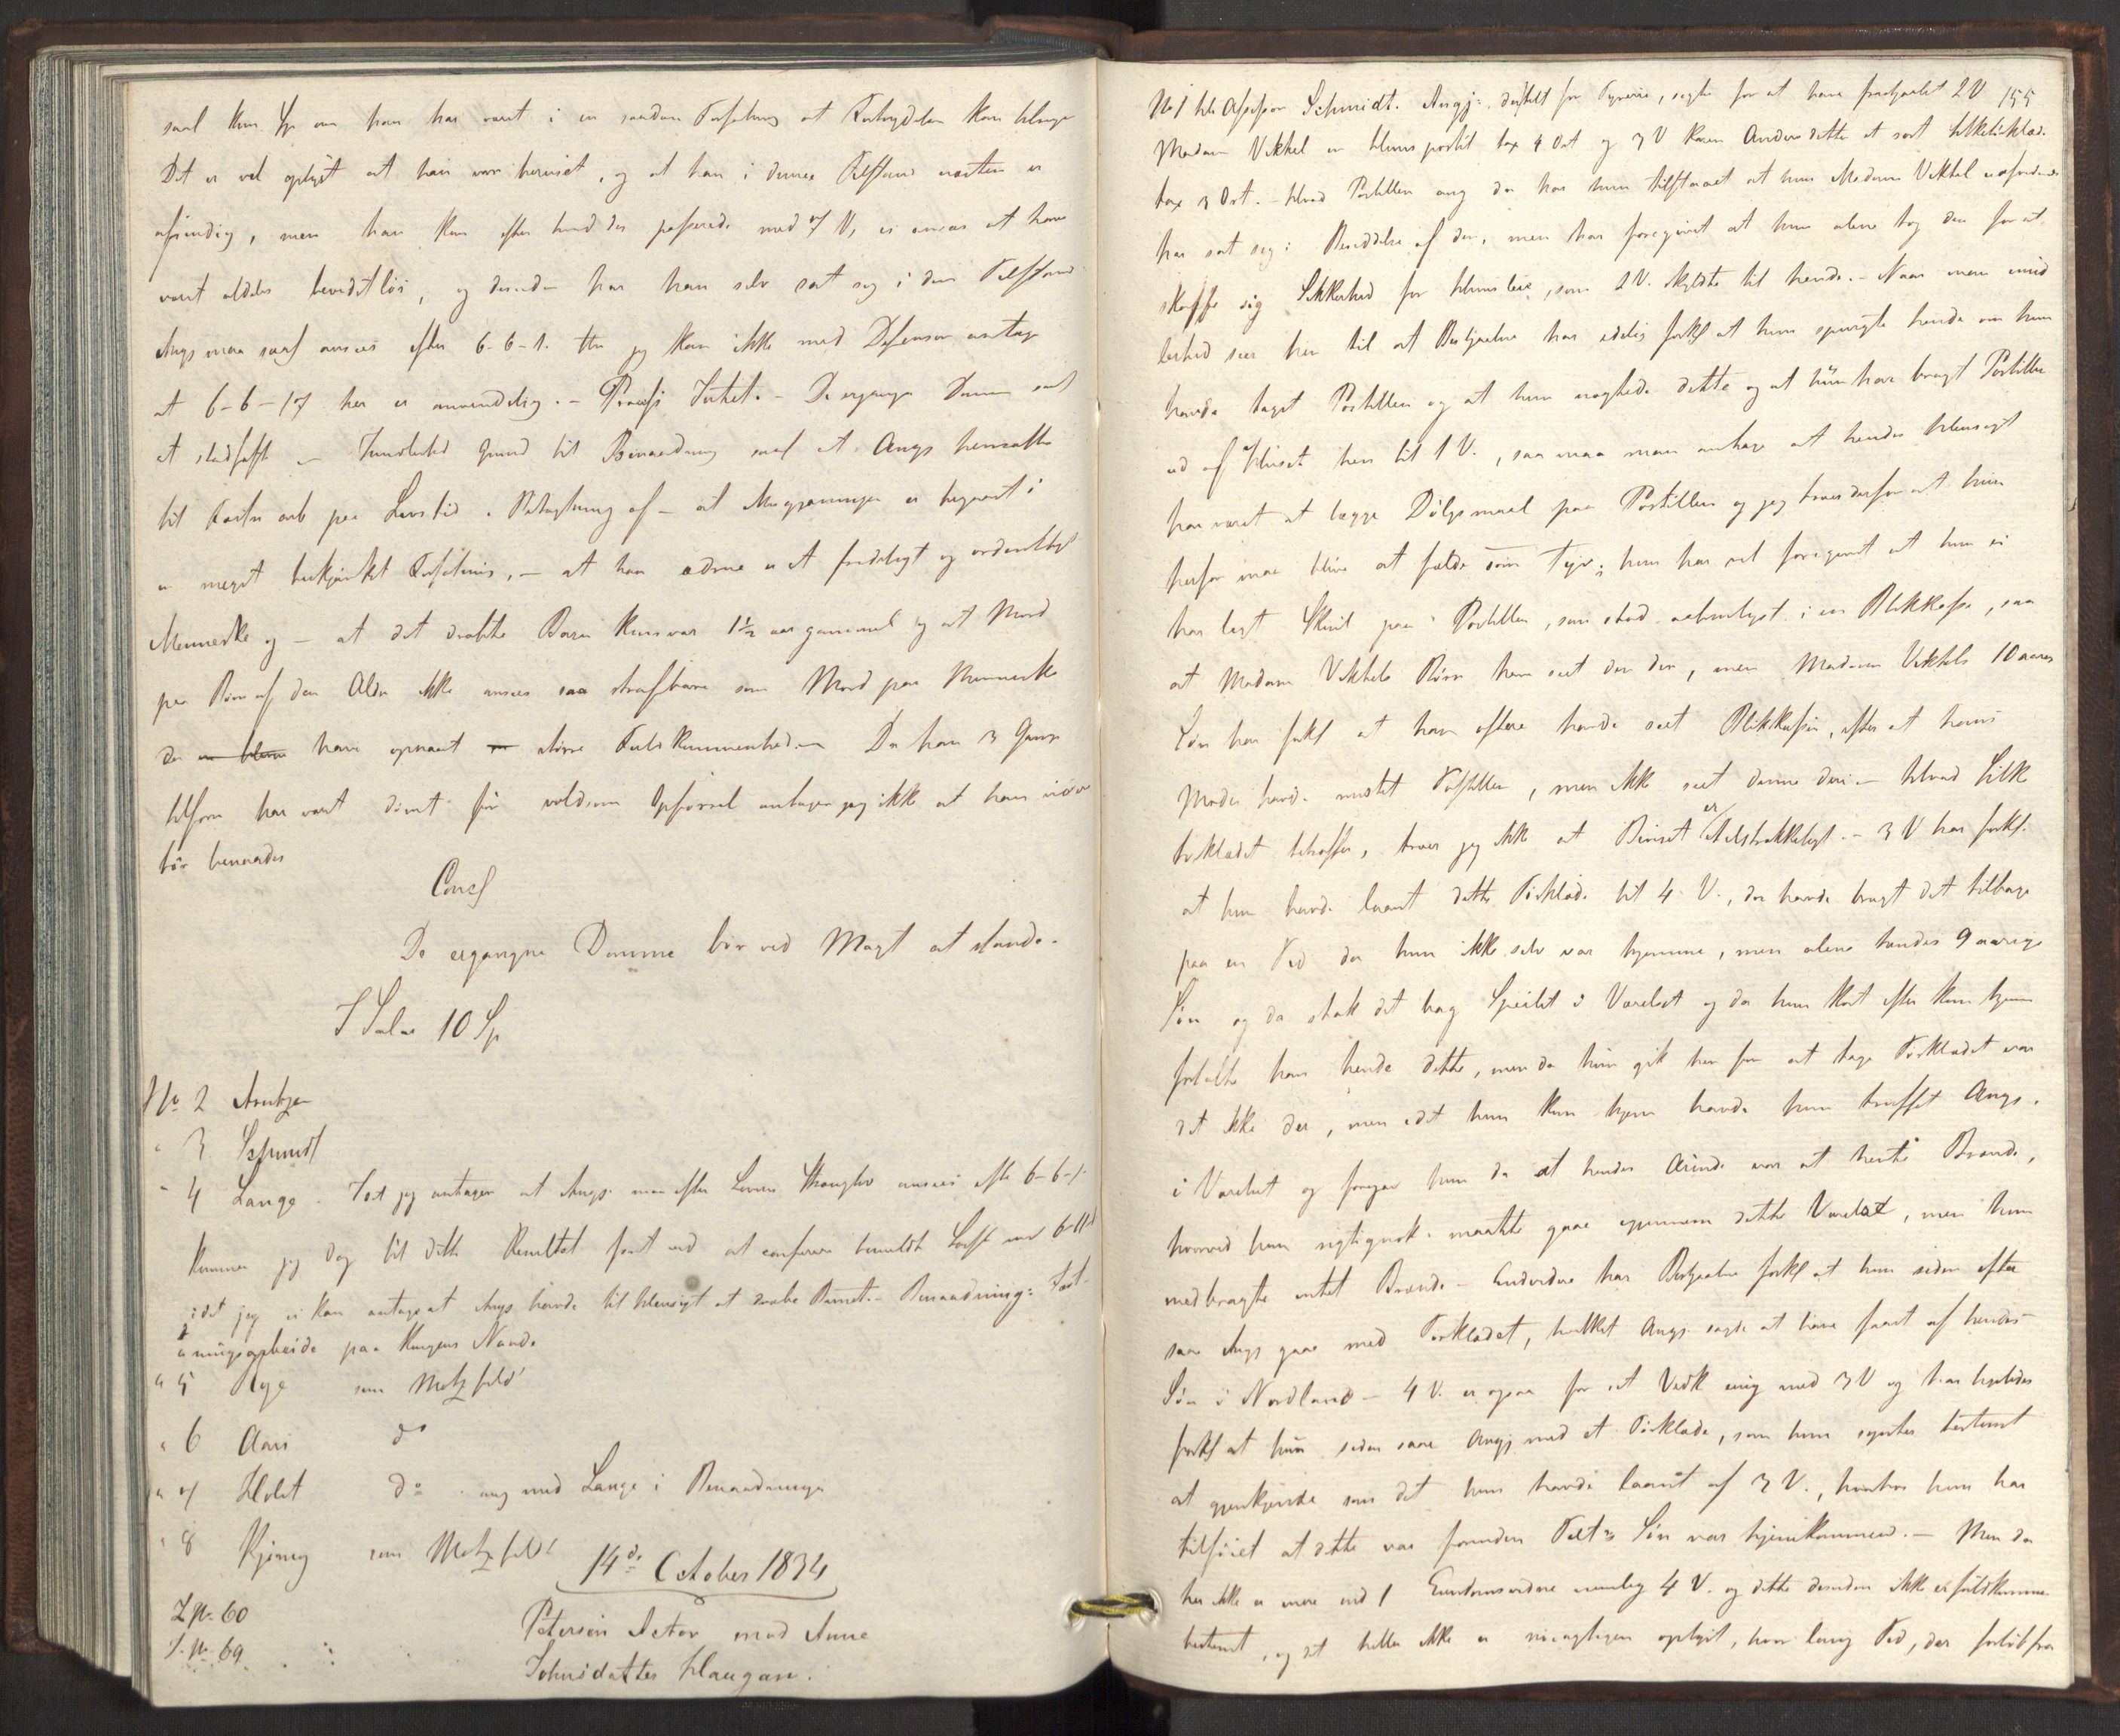 saal kun Sp om han har været i en saadan Forfatning at Forbrydelsen kan tilregnes
Det er vel oplyst at han var beruset, og at han i denne Tilstand næsten er
afsindig, men han kan efter hvad der passerede med 7 V, ei ansees at have
været aldeles bevidstløs, og desuden har han selv sat sig i den Tilstand
Angj maa saal ansees efter 6-6-1. Thi jeg kan ikke med Defensor antage
at 6-6-17 her er anvendelig. - De ergangne Domme saal
at stadfæste - Grund til Benaadning saal at Angj hensættes
til Fæstn arb paa Livstid i Betragtning af - at Misgjerningen er begaaet i
en meget beskjænket Forfatning, - at han ædrue er et fredeligt og ordentligt
Menneske og - at det dræbte Barn kun var 1½ aar gammel og at Mord
paa Børn af den Alder ikke ansees saa strafbare som Mord paa Mennesker
der have opnaaet større Fuldkommenhed. - Da han 3 Gange
tilforn har været dømt for voldsom Opførsel antager jeg ikke at han videre
bør benaades
Concl
De ergangne Domme bør ved Magt at stande.
I Salær 10 Sp
No 2
" 3 Schmidt
" 4 Lange. Skjøndt jeg antager at Angj. maa efter Lovens Strænghed ansees efter 6-6-1.
kommer jeg dog til dette Resultat først ved at conferere bemeldte Lovst med 6-11
idet jeg ei kan antage at Angj havde til Hensigt at dræbe Barnet. - Benaadning: Fæst-
ningsarbeide paa Kongens Naade
" 5 som Motzfeldt
" 6 do
" 7 Holst do enig med Lange i Benaadningen
" 8 som Motzfeldt
14de October 1834
L No 60
S. No 69
Petersen Actor mod Anne
Johnsdatter Haugan.
155
No 1 Hr Assessor Schmidt. Angj. tiltalt for Tyverie, sigtes for at have frastjaalet 2 V
Madam Vikkel en Huuspostil tax 4 Ort og 3 V Karen Andersdatter et sort Silketørklæde
tax 3 Ort. - Hvad Postillen ang da har hun tilstaaet at hun Madame Vikkel uafvidende
har sat sig i Besiddelse af den, men har foregivet at hun alene tog den for at
skaffe sig Sikkerhed for Huusleie, som 2 V. skyldte til hende. - Naar man imid
lertid seer hen til at Bestjaalne har edelig forkl at hun spurgte hende om hun
havde taget Postillen og at hun nægtede dette og at hun har bragt Postillen
ud af Huset hen til 1 V., saa maa man antage at hendes Hensigt
har været at lægge Dølgsmaal paa Postillen og jeg troer derfor at hun
herfor maa blive at fælde som Tyv; hun har vel foregivet at hun ei
har lagt Skiul paa Postillen, som stod i en Blikkasse, saa
at Madame Vikkels Børn have seet den der, men Madame Vikkels 10 aars
Søn har forkl at han oftere havde seet Blikkassen, efter at hans
Moder havde mistet Postillen, men ikke seet denne deri - Hvad Silke
tørklædet betræffer, troer jeg ikke at Beviset er tilstrækkeligt. - 3 V har forkl.
at hun havde laant dette Tørklæde til 4 V., der havde bragt det tilbage
paa en Tid da hun ikke selv var hjemme, men alene hendes 9 aarige
Søn og da stak det bag Speilet i Værelset og da hun kort efter kom hjem
fortalte han hende dette, men da hun gik hen for at tage Tørklædet var
det ikke der, men idet hun kom hjem havde hun truffet Angj.
i Værelset og foregav hun da at hendes Ærinde var at hente Brænde,
hvorved hun rigtignok maatte gaae igjennem dette Værelse, men hun
medbragte intet Brænde - Endvidere har Bestjaalne forkl at hun siden efter
saae Angj gaae med Tørklædet, hvilket Angj. sagde at have faaet af hendes
Søn i Nordland - 4 V. er ogsaa for det Vedk enig med 3 V og har ligeledes
forkl at hun siden saae Angj med et Tørklæde, som hun syntes bestemt
at gjenkjende som det hun havde laant af 3 V., hvortil hun har
tilføiet at dette var forinden Tilt's Søn var hjemkommen. - Men da
her ikke er mere end 1 nemlig 4 V. og dette desuden ikke er fuldkommen
bestemt, og det heller ikke er nøiagtigen oplyst, hvor lang Tid, der forløb fra